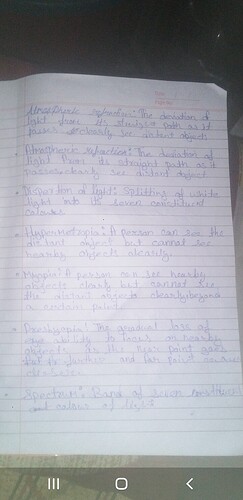 Atmospheric refraction: The deviation of
light from its straight path as it
passes clearly see distant object
Atmospheric refraction: The deviation of
light from its straight path as it
passes clearly see distant object
Dispertion of light: Splitting of white
light into its seven constituent
colours
Hypermetropia: A person can see the
distant object but cannot see
nearby objects clearly.
Myopia: A person can see nearby
objects clearly but cannot see
the distant objects clearly beyond
a certain point
Presbyopia: The gradual loss of
eye ability to focus on nearby
objects as the near point goes
far point
Spectrum: Band of seven
and colours of light